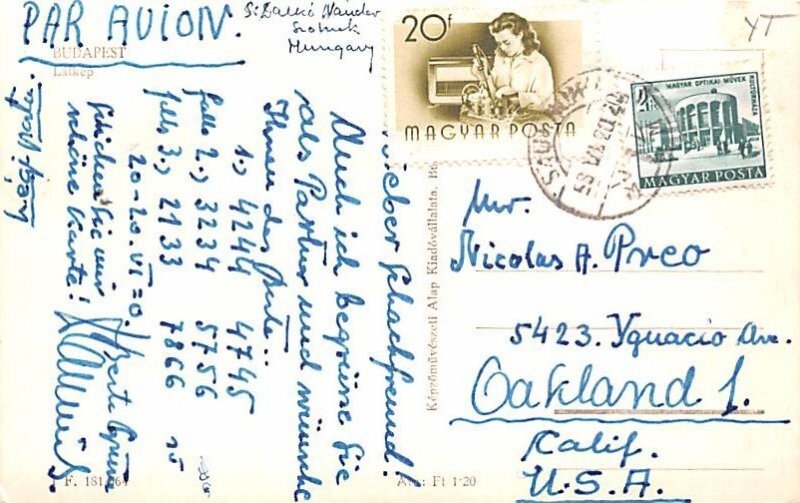 PAR AVION.
BUDAPEST
Látkép
Szolnok
Hungary
20f
MAGYAR POSTA
MAGYAR OPTIKAI MŰVEK
KULTURHÁZA
MAGYAR POSTA
Lieber Schachfreund!
Auch ich begrüsse Sie
als Partner und wünsche
Ihnen das Gute..
1.) 4244 4745
falls 2.) 3234 5756
falls 3.) 2133 7866
20-20.VI=0.
Schicken Sie mir
schöne Karte!
Beste Grüsse
Képzőművészeti Alap Kiadóvállalata, Bp.
Ára: Ft 1·20
Mr.
Nicolas A. Preo
5423. Ygnacio Ave.
Oakland 1.
Calif.
U.S.A.